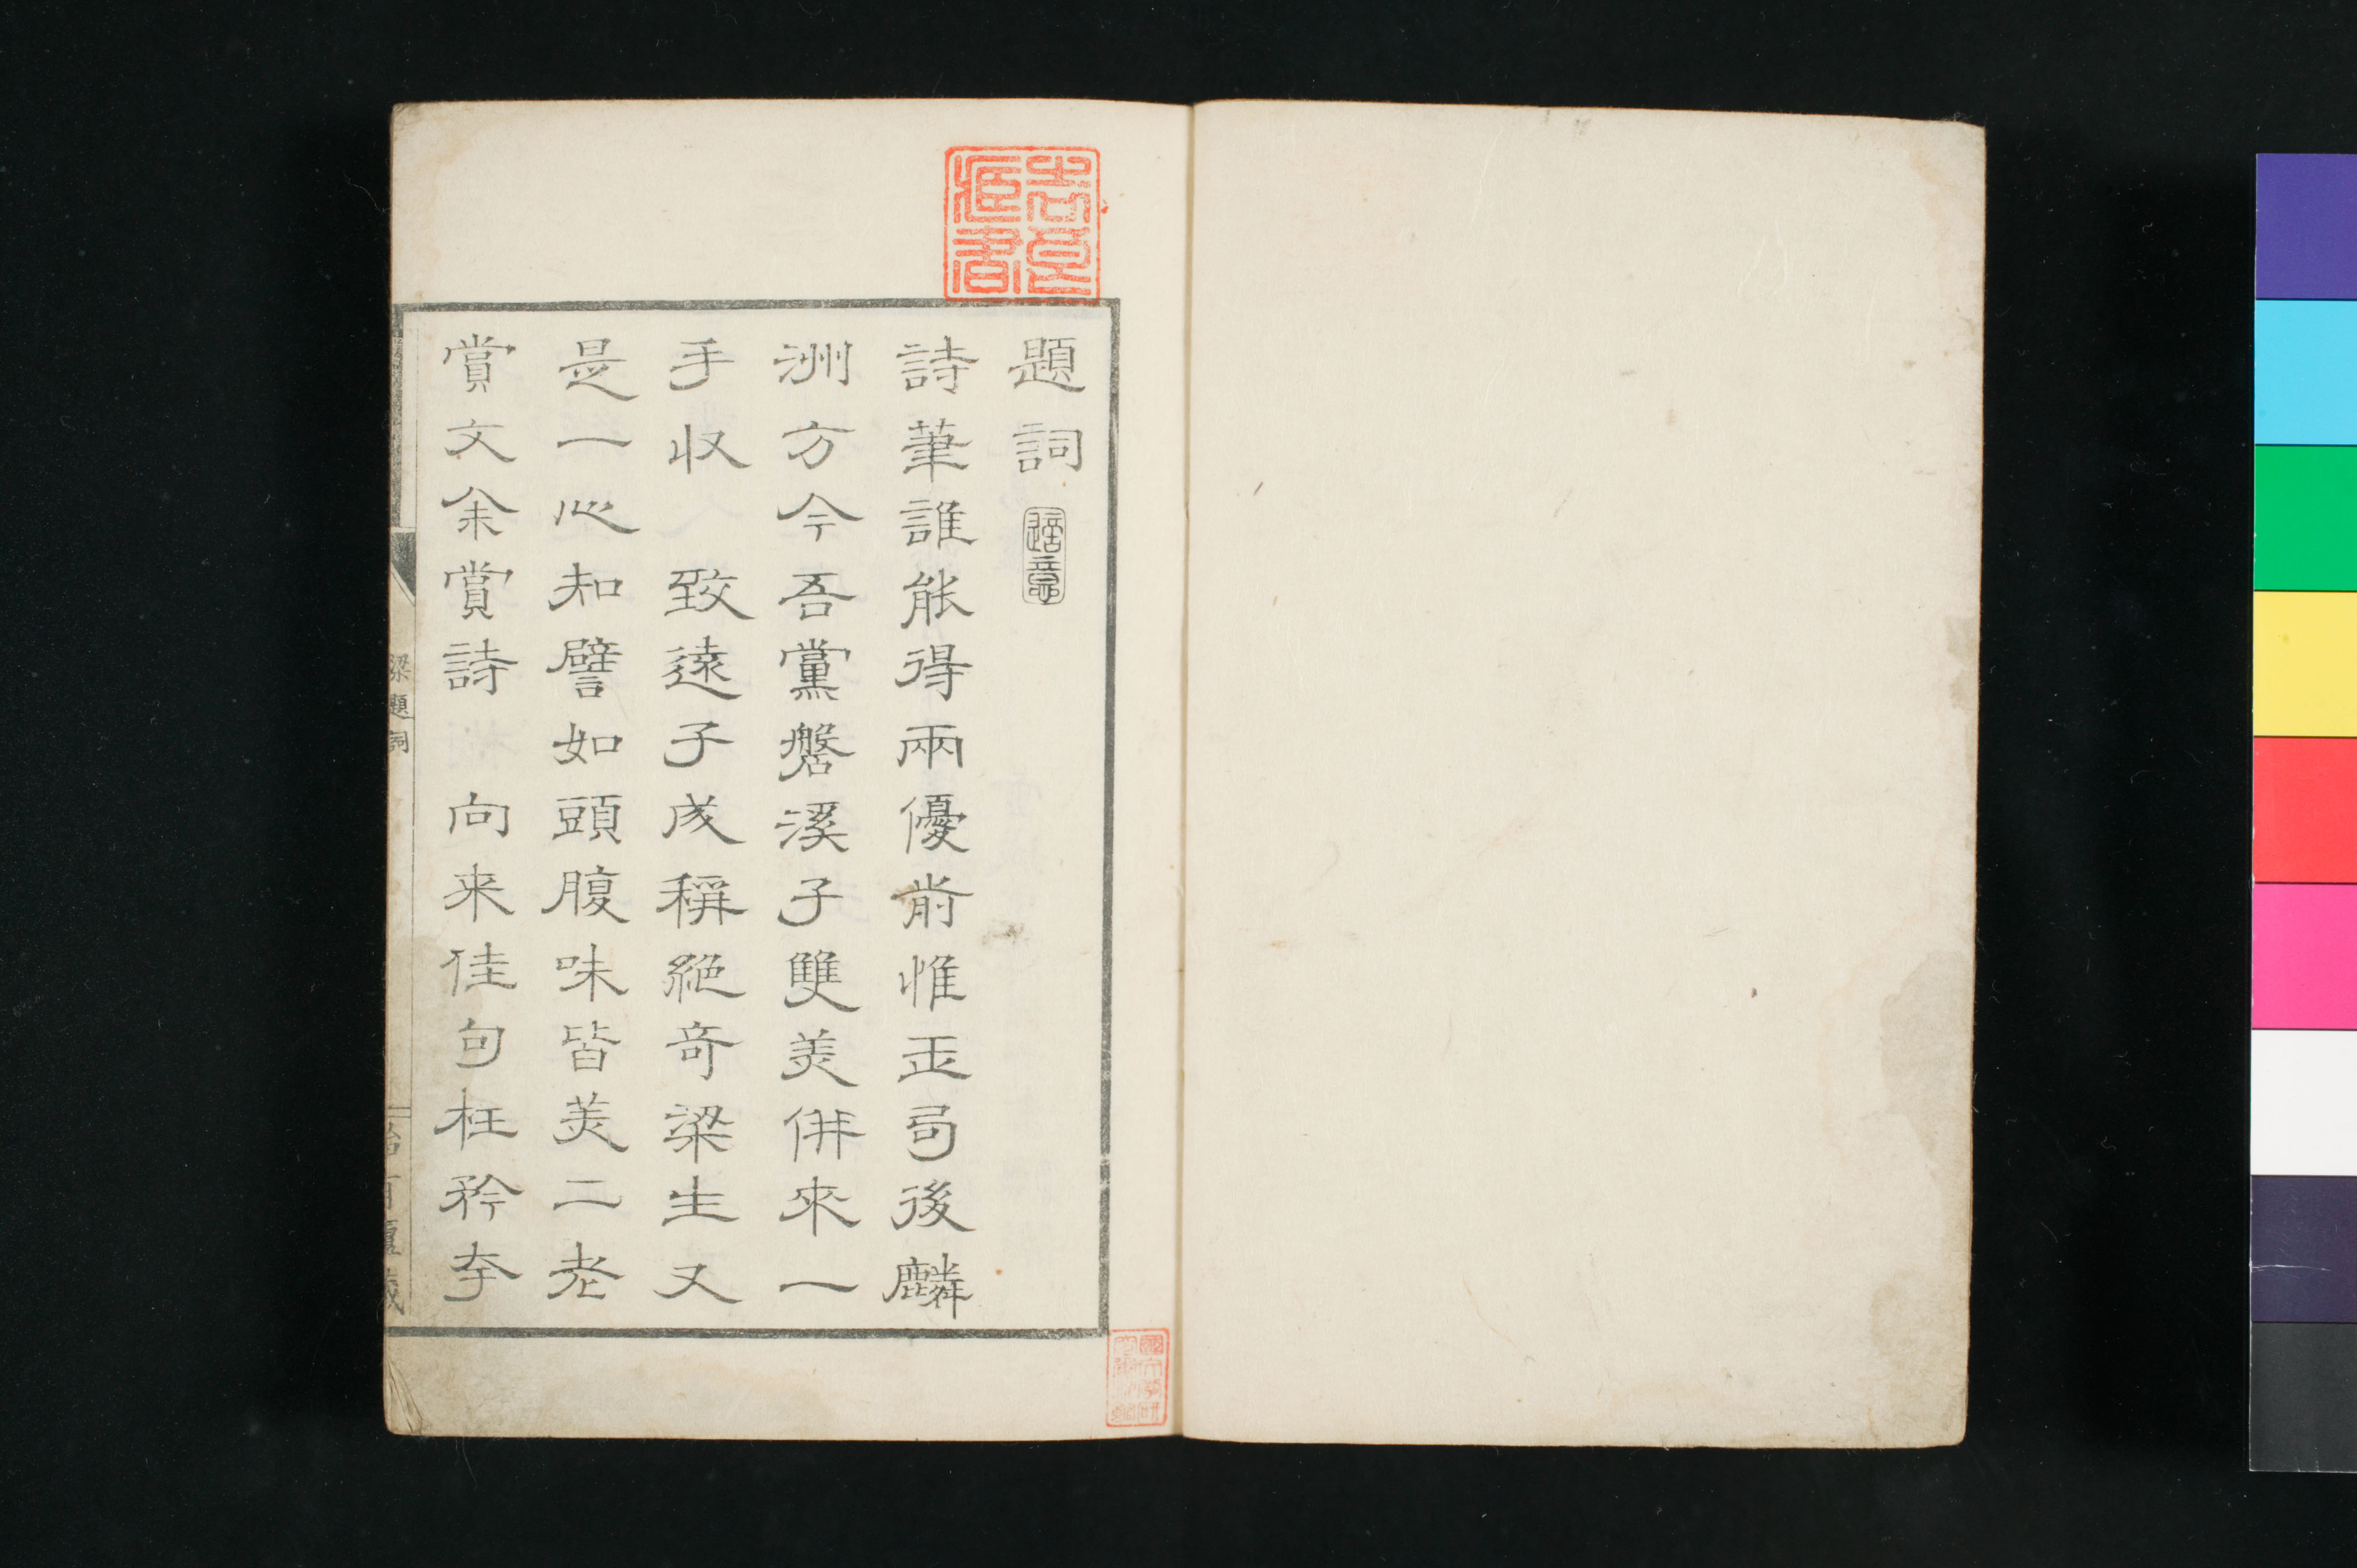 題詞
詩筆誰能得兩優前惟玉局後麟
洲方今吾黨磐溪子雙美併來一
手収 致遠子成稱絕奇梁生又
是一心知譬如頭腹味皆美二老
賞文余賞詩 向来佳句枉矜夸
梁題詞